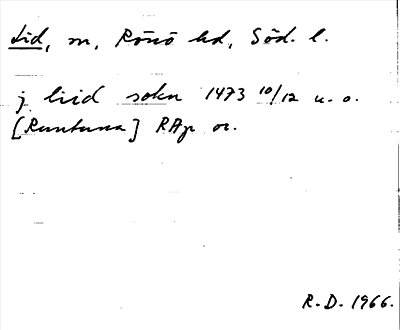 Lid, sn, Rönö hd, Söd. l.
j liid sokn 1473 10/12 u. o.
[Runtuna] RAp or.
R. D. 1966.